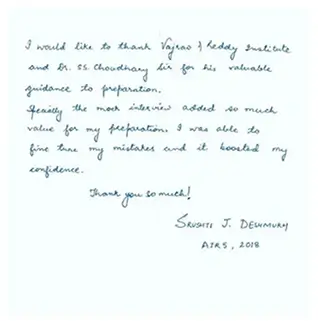 I would like to thank Vajrao & Reddy Institute
and Dr. S.S. Choudhary Sir for his valuable
guidance to preparation.
Specially the mock interview added so much
value for my preparation. I was able to
fine tune my mistakes and it boosted my
confidence.
Thank you so much!
SRUSHTI J. DESHMUKH
AIR 5, 2018